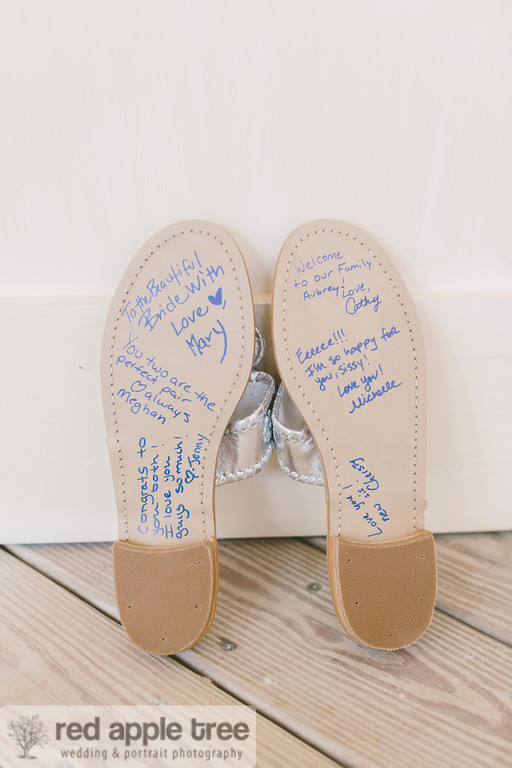 To the Beautiful
Bride With
Love ♥,
Mary
You two are the
perfect pair
♡ always
meghan
Congrats to
you both!
I love you
guys so much!
♡, Jenny
Welcome
to our Family
Aubrey!
Love,
Cathy
Eeeeee!!!
I'm so happy for
you, Sissy!
Love you!
Michelle
Love you!
new sis
red apple tree
wedding & portrait photography